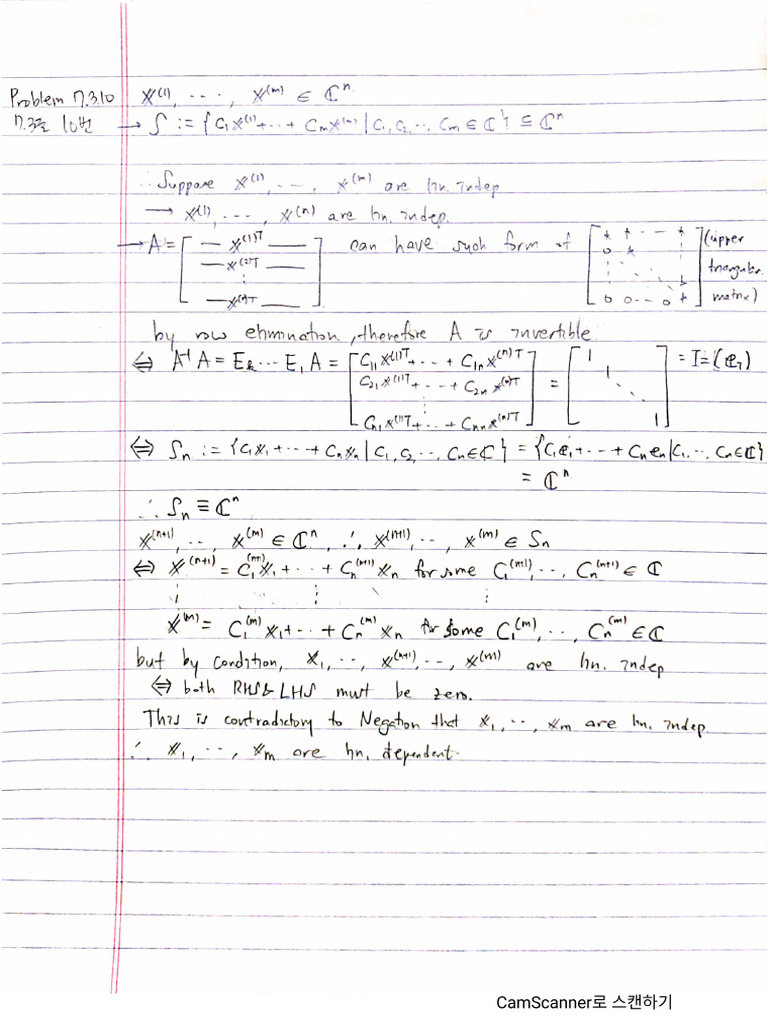 Problem 7.3.10 x^(1), ..., x^(m) ∈ ℂ^n.
7.3절 10번 → S := {c₁x^(1)+...+ cₘx^(m) | c₁, c₂, ..., cₘ ∈ ℂ} ⊆ ℂ^n
Suppose x^(1), ..., x^(m) are lin. indep
→ x^(1), ..., x^(n) are lin. indep.
→ A = [ — x^(1)T — — x^(2)T — ⋮ — x^(n)T — ] can have such form of [ * * - - * 0 * ⋮ 0 0 -- 0 * ] (upper triangular matrix)
by row elimination, therefore A is invertible.
⇔ A⁻¹A = E_k ... E₁ A = [ C₁₁x^(1)T + ... + C₁ₙx^(n)T C₂₁x^(1)T + ... + C₂ₙx^(n)T ⋮ Cₙ₁x^(1)T + ... + Cₙₙx^(n)T ] = [ 1 1 ⋱ 1 ] = I =
⇔ Sₙ := {c₁x₁ + ... + cₙxₙ | c₁, c₂, ..., cₙ ∈ ℂ} = {c₁e₁ + ... + cₙeₙ | c₁, ..., cₙ ∈ ℂ}
= ℂ^n
∴ Sₙ ≡ ℂ^n
x^(n+1), ..., x^(m) ∈ ℂ^n, ∴ x^(n+1), ..., x^(m) ∈ Sₙ
⇔ x^(n+1) = C₁^(n+1) x₁ + ... + Cₙ^(n+1) xₙ for some C₁^(n+1), ..., Cₙ^(n+1) ∈ ℂ
⋮ ⋮ ⋮
x^(m) = C₁^(m) x₁ + ... + Cₙ^(m) xₙ for some C₁^(m), ..., Cₙ^(m) ∈ ℂ
but by condition, x₁, ..., x^(n+1), ..., x^(m) are lin. indep
⇔ both RHS & LHS must be zero.
This is contradictory to Negation that x₁, ..., xₘ are lin. indep.
∴ x₁, ..., xₘ are lin. dependent.
CamScanner로 스캔하기